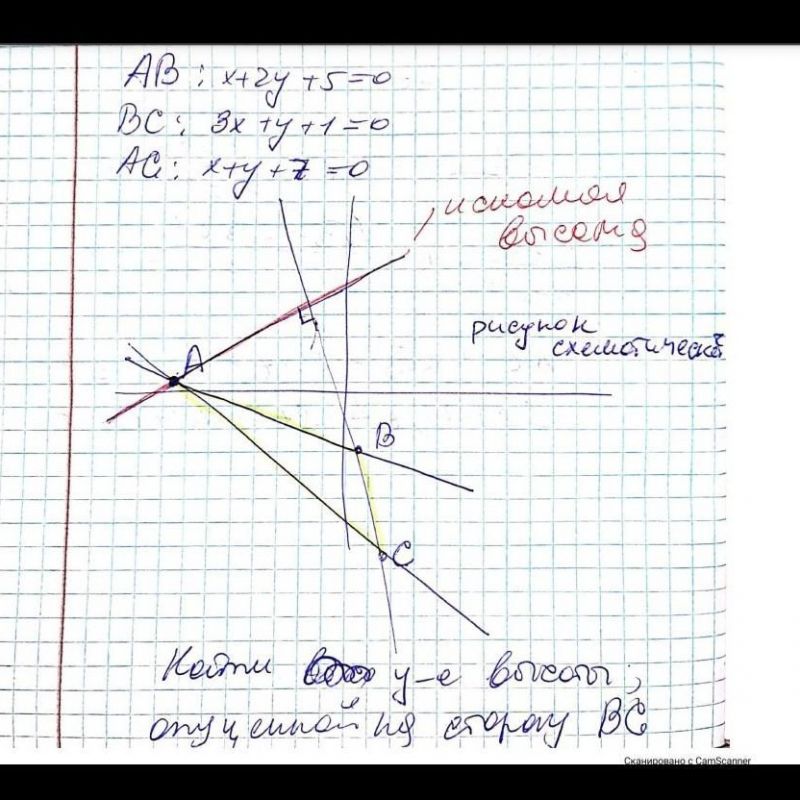 AB: x+2y+5=0
BC: 3x+y+1=0
AC: x+y+7=0
искомая
высота
рисунок
схематический
A
B
C
Найти у-е высоты,
опущенной на сторону BC
Сканировано с CamScanner